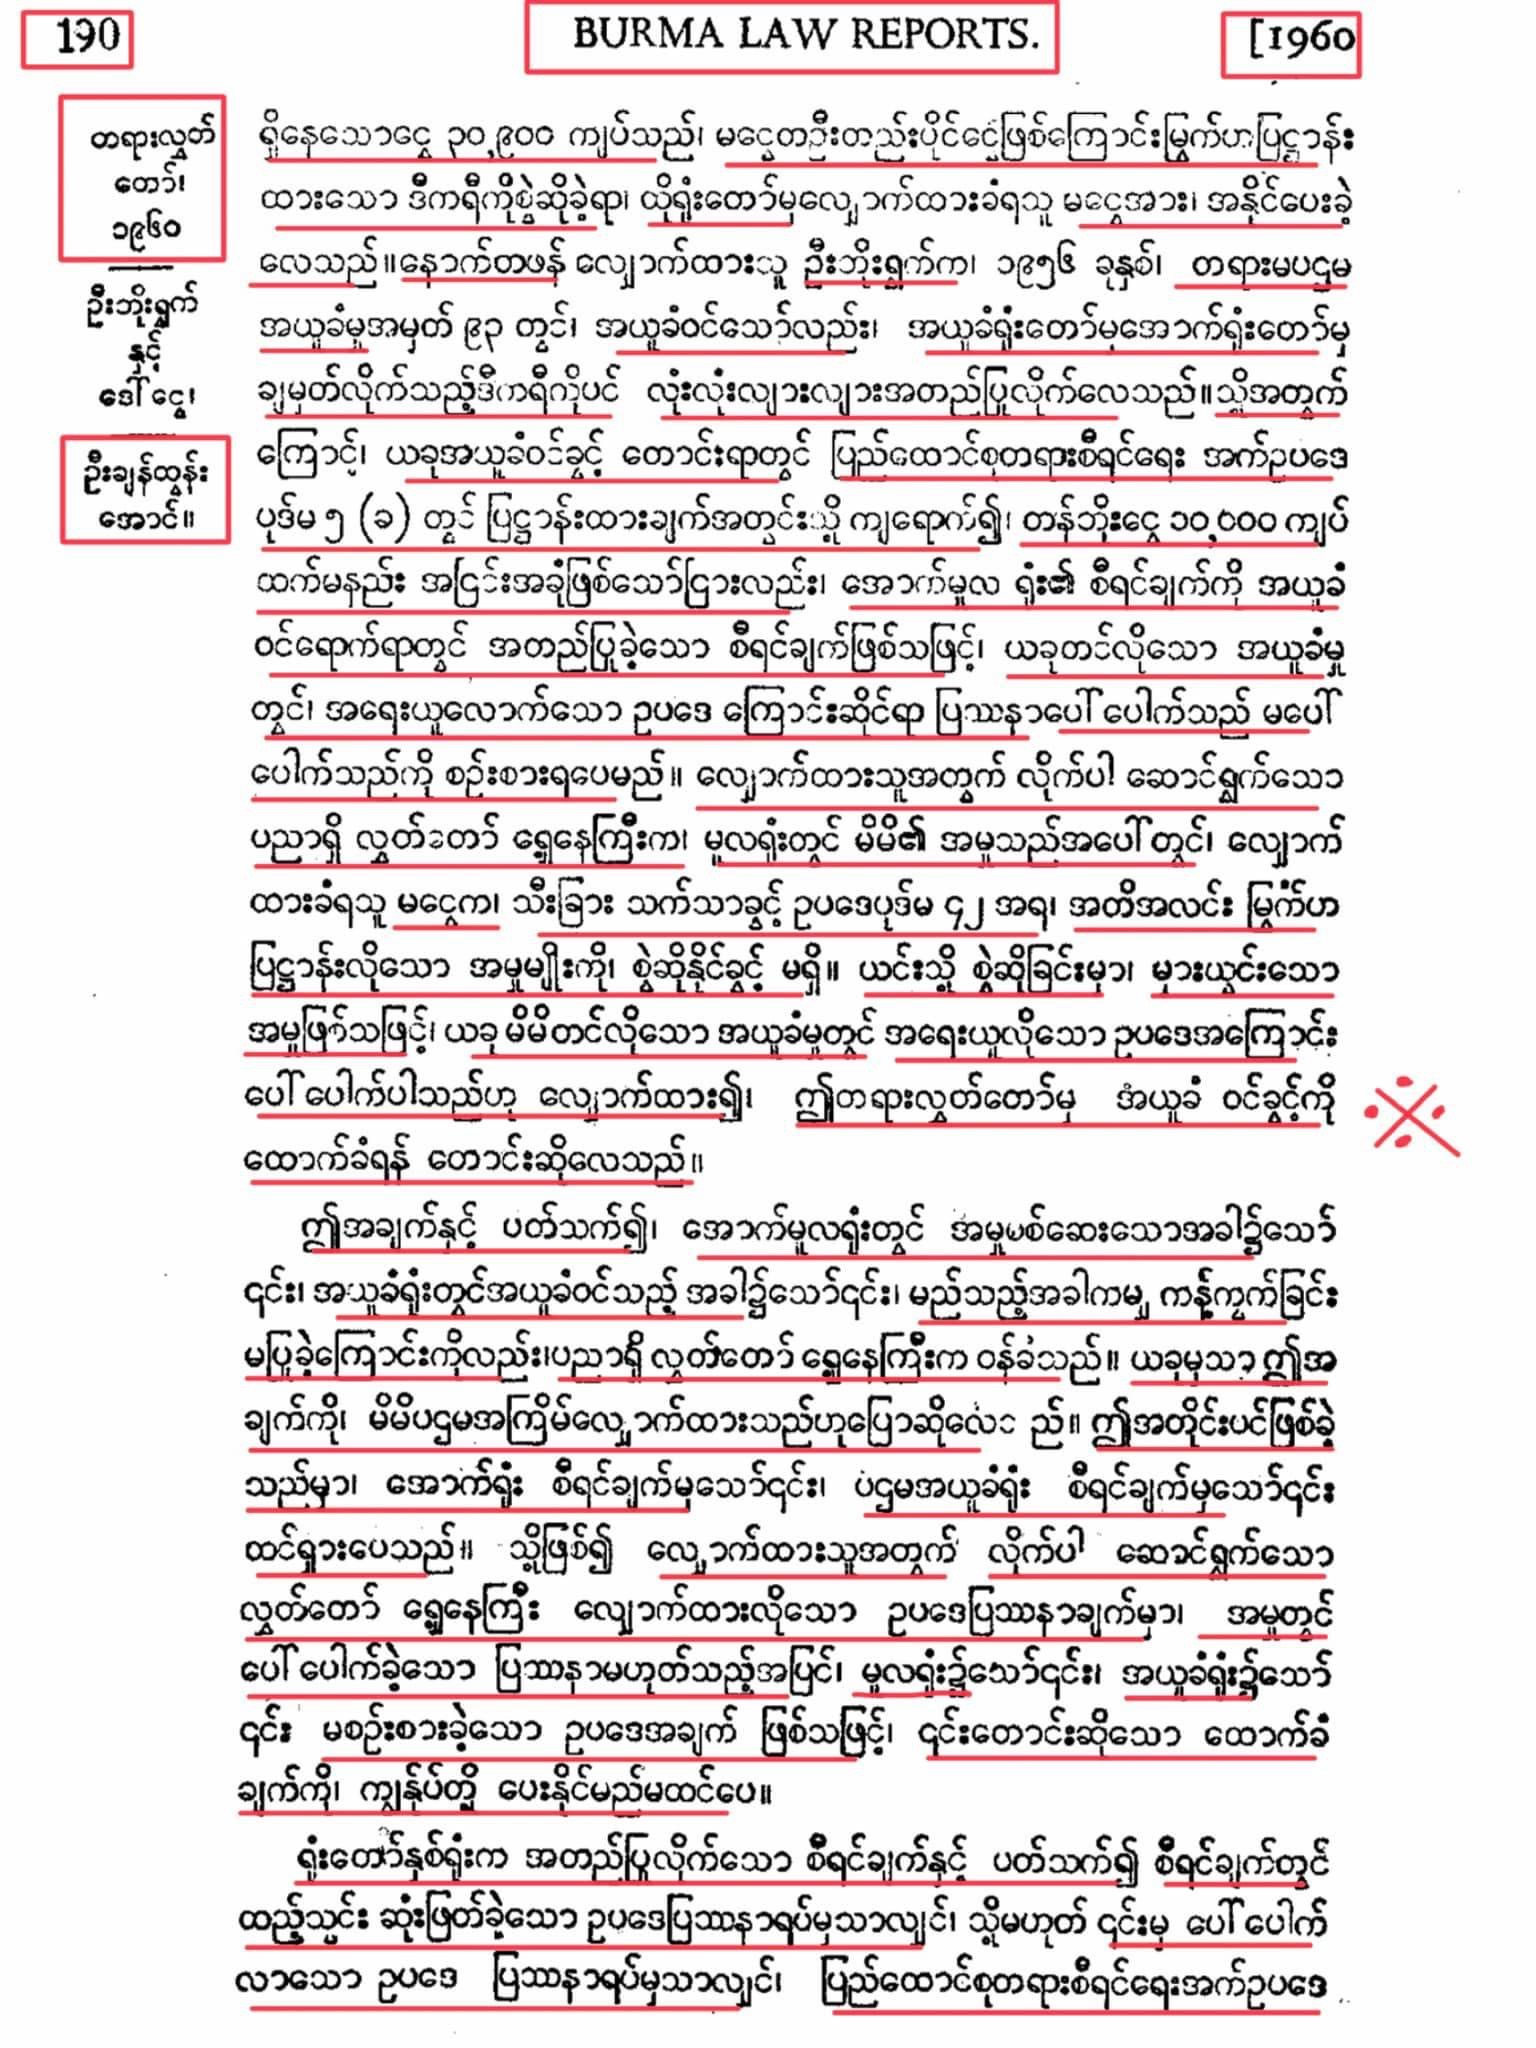 190
BURMA LAW REPORTS.
[1960
တရားလွှတ်
တော်၊
၁၉၆၀
ဦးဘိုးရွှက်
နှင့်
ဒေါ်ငွေ၊
ဦးချန်ထွန်း
အောင်။
ရှိနေသောငွေ ၃၀,၉၀၀ ကျပ်သည်၊ မငွေတဦးတည်းပိုင်ငွေဖြစ်ကြောင်းမြွက်ဟပြဋ္ဌာန်း
ထားသော ဒီကရီကိုစွဲဆိုခဲ့ရာ၊ ထိုရုံးတော်မှလျှောက်ထားခံရသူ မငွေအား၊ အနိုင်ပေးခဲ့
လေသည်။ နောက်တဖန် လျှောက်ထားသူ ဦးဘိုးရွှက်က၊ ၁၉၅၆ ခုနှစ်၊ တရားမပဌမ
အယူခံမှုအမှတ် ၉၃ တွင်၊ အယူခံဝင်သော်လည်း၊ အယူခံရုံးတော်မှအောက်ရုံးတော်မှ
ချမှတ်လိုက်သည့်ဒီကရီကိုပင် လုံးလုံးလျားလျားအတည်ပြုလိုက်လေသည်။ သို့အတွက်
ကြောင့်၊ ယခုအယူခံဝင်ခွင့် တောင်းရာတွင် ပြည်ထောင်စုတရားစီရင်ရေး အက်ဥပဒေ
ပုဒ်မ ၅ (ခ) တွင် ပြဋ္ဌာန်းထားချက်အတွင်းသို့ ကျရောက်၍၊ တန်ဘိုးငွေ ၁၀,၀၀၀ ကျပ်
ထက်မနည်း အငြင်းအခုံဖြစ်သော်ငြားလည်း၊ အောက်မူလ ရုံး၏ စီရင်ချက်ကို အယူခံ
ဝင်ရောက်ရာတွင် အတည်ပြုခဲ့သော စီရင်ချက်ဖြစ်သဖြင့်၊ ယခုတင်လိုသော အယူခံမှု
တွင်၊ အရေးယူလောက်သော ဥပဒေ ကြောင်းဆိုင်ရာ ပြဿနာပေါ်ပေါက်သည် မပေါ်
ပေါက်သည်ကို စဉ်းစားရပေမည်။ လျှောက်ထားသူအတွက် လိုက်ပါ ဆောင်ရွက်သော
ပညာရှိ လွှတ်တော် ရှေ့နေကြီးက၊ မူလရုံးတွင် မိမိ၏ အမှုသည်အပေါ်တွင်၊ လျှောက်
ထားခံရသူ မငွေက၊ သီးခြား သက်သာခွင့် ဥပဒေပုဒ်မ ၄၂ အရ၊ အတိအလင်း မြွက်ဟ
ပြဋ္ဌာန်းလိုသော အမှုမျိုးကို၊ စွဲဆိုနိုင်ခွင့် မရှိ။ ယင်းသို့ စွဲဆိုခြင်းမှာ၊ မှားယွင်းသော
အမှုဖြစ်သဖြင့်၊ ယခု မိမိတင်လိုသော အယူခံမှုတွင် အရေးယူလိုသော ဥပဒေအကြောင်း
ပေါ်ပေါက်ပါသည်ဟု လျှောက်ထား၍၊ ဤတရားလွှတ်တော်မှ အယူခံ ဝင်ခွင့်ကို
ထောက်ခံရန် တောင်းဆိုလေသည်။
ဤအချက်နှင့် ပတ်သက်၍၊ အောက်မူလရုံးတွင် အမှုစစ်ဆေးသောအခါ၌သော်
၎င်း၊ အယူခံရုံးတွင်အယူခံဝင်သည့် အခါ၌သော်၎င်း၊ မည်သည့်အခါကမျှ ကန့်ကွက်ခြင်း
မပြုခဲ့ကြောင်းကိုလည်း၊ပညာရှိ လွှတ်တော် ရှေ့နေကြီးက ဝန်ခံသည်။ ယခုမှသာ ဤအ
ချက်ကို၊ မိမိပဌမအကြိမ်လျှောက်ထားသည်ဟုပြောဆိုလေသည်။ ဤအတိုင်းပင်ဖြစ်ခဲ့
သည်မှာ၊ အောက်ရုံး စီရင်ချက်မှသော်၎င်း၊ ပဌမအယူခံရုံး စီရင်ချက်မှသော်၎င်း
ထင်ရှားပေသည်။ သို့ဖြစ်၍ လျှောက်ထားသူအတွက် လိုက်ပါ ဆောင်ရွက်သော
လွှတ်တော် ရှေ့နေကြီး လျှောက်ထားလိုသော ဥပဒေပြဿနာချက်မှာ၊ အမှုတွင်
ပေါ်ပေါက်ခဲ့သော ပြဿနာမဟုတ်သည့်အပြင်၊ မူလရုံး၌သော်၎င်း၊ အယူခံရုံး၌သော်
၎င်း မစဉ်းစားခဲ့သော ဥပဒေအချက် ဖြစ်သဖြင့်၊ ၎င်းတောင်းဆိုသော ထောက်ခံ
ချက်ကို၊ ကျွန်ုပ်တို့ ပေးနိုင်မည်မထင်ပေ။
ရုံးတော်နှစ်ရုံးက အတည်ပြုလိုက်သော စီရင်ချက်နှင့် ပတ်သက်၍ စီရင်ချက်တွင်
ထည့်သွင်း ဆုံးဖြတ်ခဲ့သော ဥပဒေပြဿနာရပ်မှသာလျှင်၊ သို့မဟုတ် ၎င်းမှ ပေါ်ပေါက်
လာသော ဥပဒေ ပြဿနာရပ်မှသာလျှင်၊ ပြည်ထောင်စုတရားစီရင်ရေးအက်ဥပဒေ